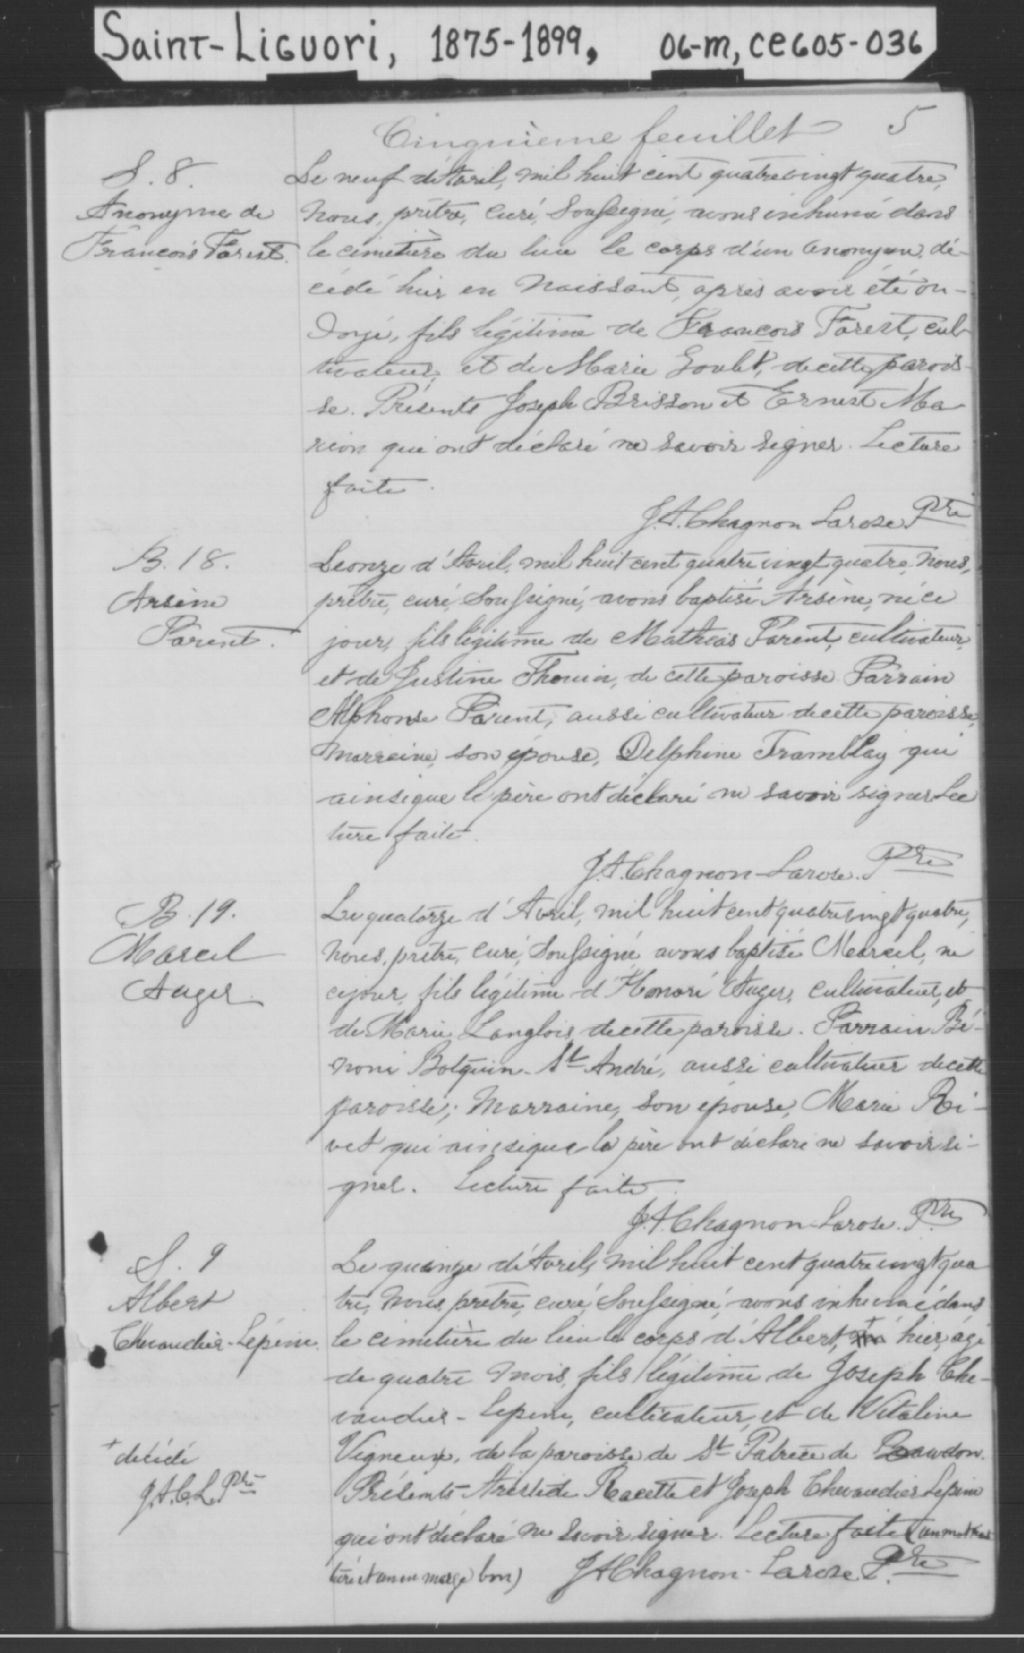 Saint-Liguori, 1875-1899, 06-m, CE605-036
Cinquième feuillet 5
S. 8.
Anonyme de
François Forest.
Le neuf d'Avril, mil huit cent quatrevingt quatre,
Nous, prêtre, curé, Soussigné, avons inhumé dans
le cimetière du lieu le corps d'un anonyme, dé-
cédé hier en naissant, après avoir été on-
doyé, fils légitime de François Forest, cul-
tivateur, et de Marie Goulet, de cette parois-
se. Présents Joseph Brisson et Ernest Ma
rion qui ont déclaré ne savoir signer. Lecture
faite.
J.A. Chagnon Larose Ptre
B. 18.
Arsène
Parent.
Le onze d'Avril, mil huit cent quatre vingt quatre, Nous,
prêtre, curé, Soussigné, avons baptisé Arsène, né ce
jour, fils légitime de Mathias Parent, cultivateur,
et de Justine Thouin, de cette paroisse Parrain
Alphonse Parent, aussi cultivateur de cette paroisse,
Marraine, son épouse, Delphine Tramblay qui
ainsi que le père ont déclaré ne savoir signer Lec
ture faite.
J.A. Chagnon-Larose. Ptre
B. 19.
Marcel
Auger
Le quatorze d'Avril, mil huit cent quatrevingt quatre,
Nous, prêtre, curé, Soussigné avons baptisé Marcel, né
ce jour, fils légitime d'Honoré Auger, cultivateur, et
de Marie Langlois de cette paroisse. Parrain Bé-
noni Bolquin-St André, aussi cultivateur de cette
paroisse; Marraine, son épouse, Marie Ri-
vet qui ainsi que le père ont déclaré ne savoir si-
gner. Lecture faite.
J.A. Chagnon-Larose. Ptre
S. 9
Albert
Chevaudier-Lépine.
Le quinze d'Avril, mil huit cent quatre vingt qua
tre, Nous, prêtre, curé, Soussigné, avons inhumé dans
le cimetière du lieu le corps d'Albert, + hier, agé
de quatre mois, fils légitime de Joseph Che-
vaudier-Lépine, cultivateur, et de Vitaline
+ décédé
J.A.C.L. Ptre
Vigneux, de la paroisse de St Patrice de Rawdon.
Présents Aristide Racette et Joseph Chevaudier Lépine
qui ont déclaré ne savoir signer. Lecture faite (un mot
et un en marge bon) J.A. Chagnon-Larose. Ptre